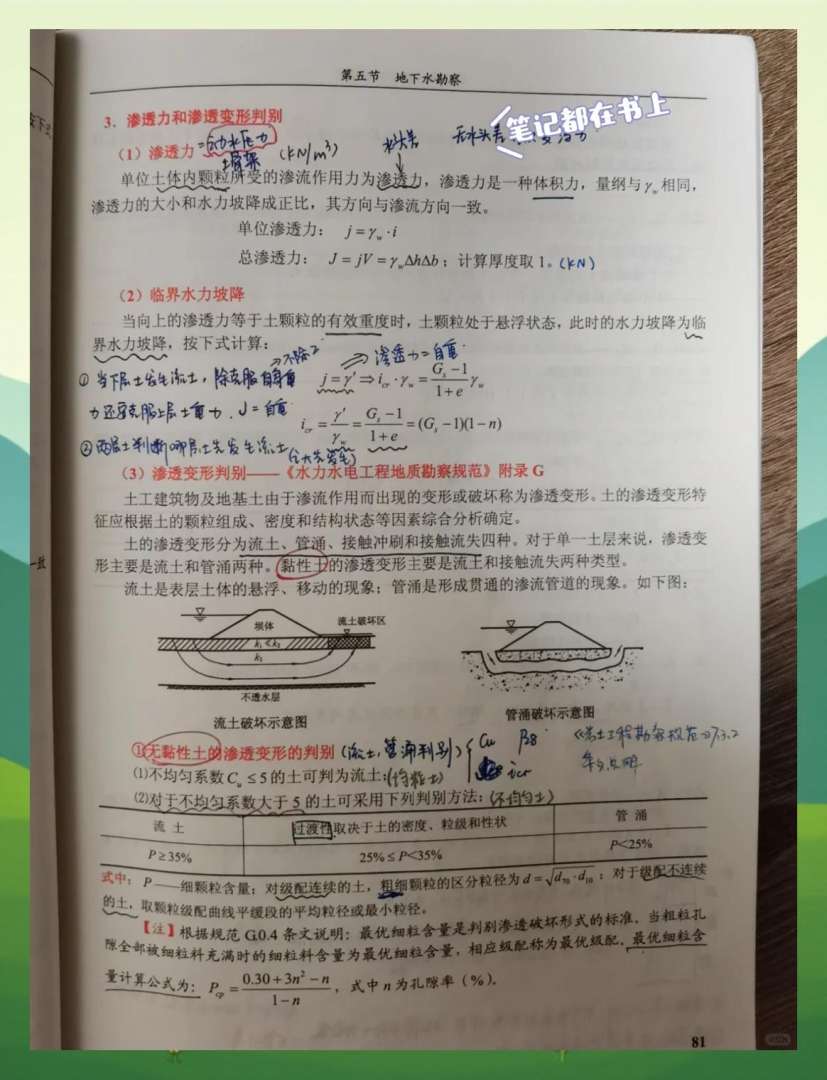 第五节 地下水勘察
笔记都在书上
3．渗透力和渗透变形判别
（1）渗透力 (kN/m³)
水头差 无水头差
土骨架
单位土体内颗粒所受的渗流作用力为渗透力，渗透力是一种体积力，量纲与γw相同，
渗透力的大小和水力坡降成正比，其方向与渗流方向一致。
单位渗透力： j = γw · i
总渗透力： J = jV = γwΔhΔb ；计算厚度取 1。(kN)
（2）临界水力坡降
当向上的渗透力等于土颗粒的有效重度时，土颗粒处于悬浮状态，此时的水力坡降为临
界水力坡降，按下式计算：
渗透力=自重
①当下层土发生流土，除克服自身重 j = γ' ⇒ icr · γw = (Gs − 1)/(1 + e) γw
力还要克服上层土重力．J=自重
icr = γ'/γw = (Gs − 1)/(1 + e) = (Gs − 1)(1 − n)
②两层土判断哪层土先发生流土
（3）渗透变形判别——《水力水电工程地质勘察规范》附录 G
土工建筑物及地基土由于渗流作用而出现的变形或破坏称为渗透变形。土的渗透变形特
征应根据土的颗粒组成、密度和结构状态等因素综合分析确定。
土的渗透变形分为流土、管涌、接触冲刷和接触流失四种。对于单一土层来说，渗透变
形主要是流土和管涌两种。黏性土的渗透变形主要是流土和接触流失两种类型。
流土是表层土体的悬浮、移动的现象；管涌是形成贯通的渗流管道的现象。如下图：
坝体 流土破坏区
k1<k2
k2
不透水层
流土破坏示意图 管涌破坏示意图
①无黏性土的渗透变形的判别 (流土,管涌判别) Cu P28
icr
《岩土工程勘察规范》7.3.2
条文说明
⑴不均匀系数 Cu ≤ 5 的土可判为流土；(均粒土)
⑵对于不均匀系数大于 5 的土可采用下列判别方法：(不均匀土)
流 土 过渡性取决于土的密度、粒级和性状 管 涌
P≥35% 25%≤P<35% P<25%
式中：P——细颗粒含量；对级配连续的土，粗细颗粒的区分粒径为 d = √(d70 · d10) ；对于级配不连续
的土，取颗粒级配曲线平缓段的平均粒径或最小粒径。
【注】根据规范 G.0.4 条文说明：最优细粒含量是判别渗透破坏形式的标准。当粗粒孔
隙全部被细粒料充满时的细粒料含量为最优细粒含量，相应级配称为最优级配．最优细粒含
量计算公式为：Pcp = (0.30 + 3n² − n)/(1 − n)，式中 n 为孔隙率（%）。
81